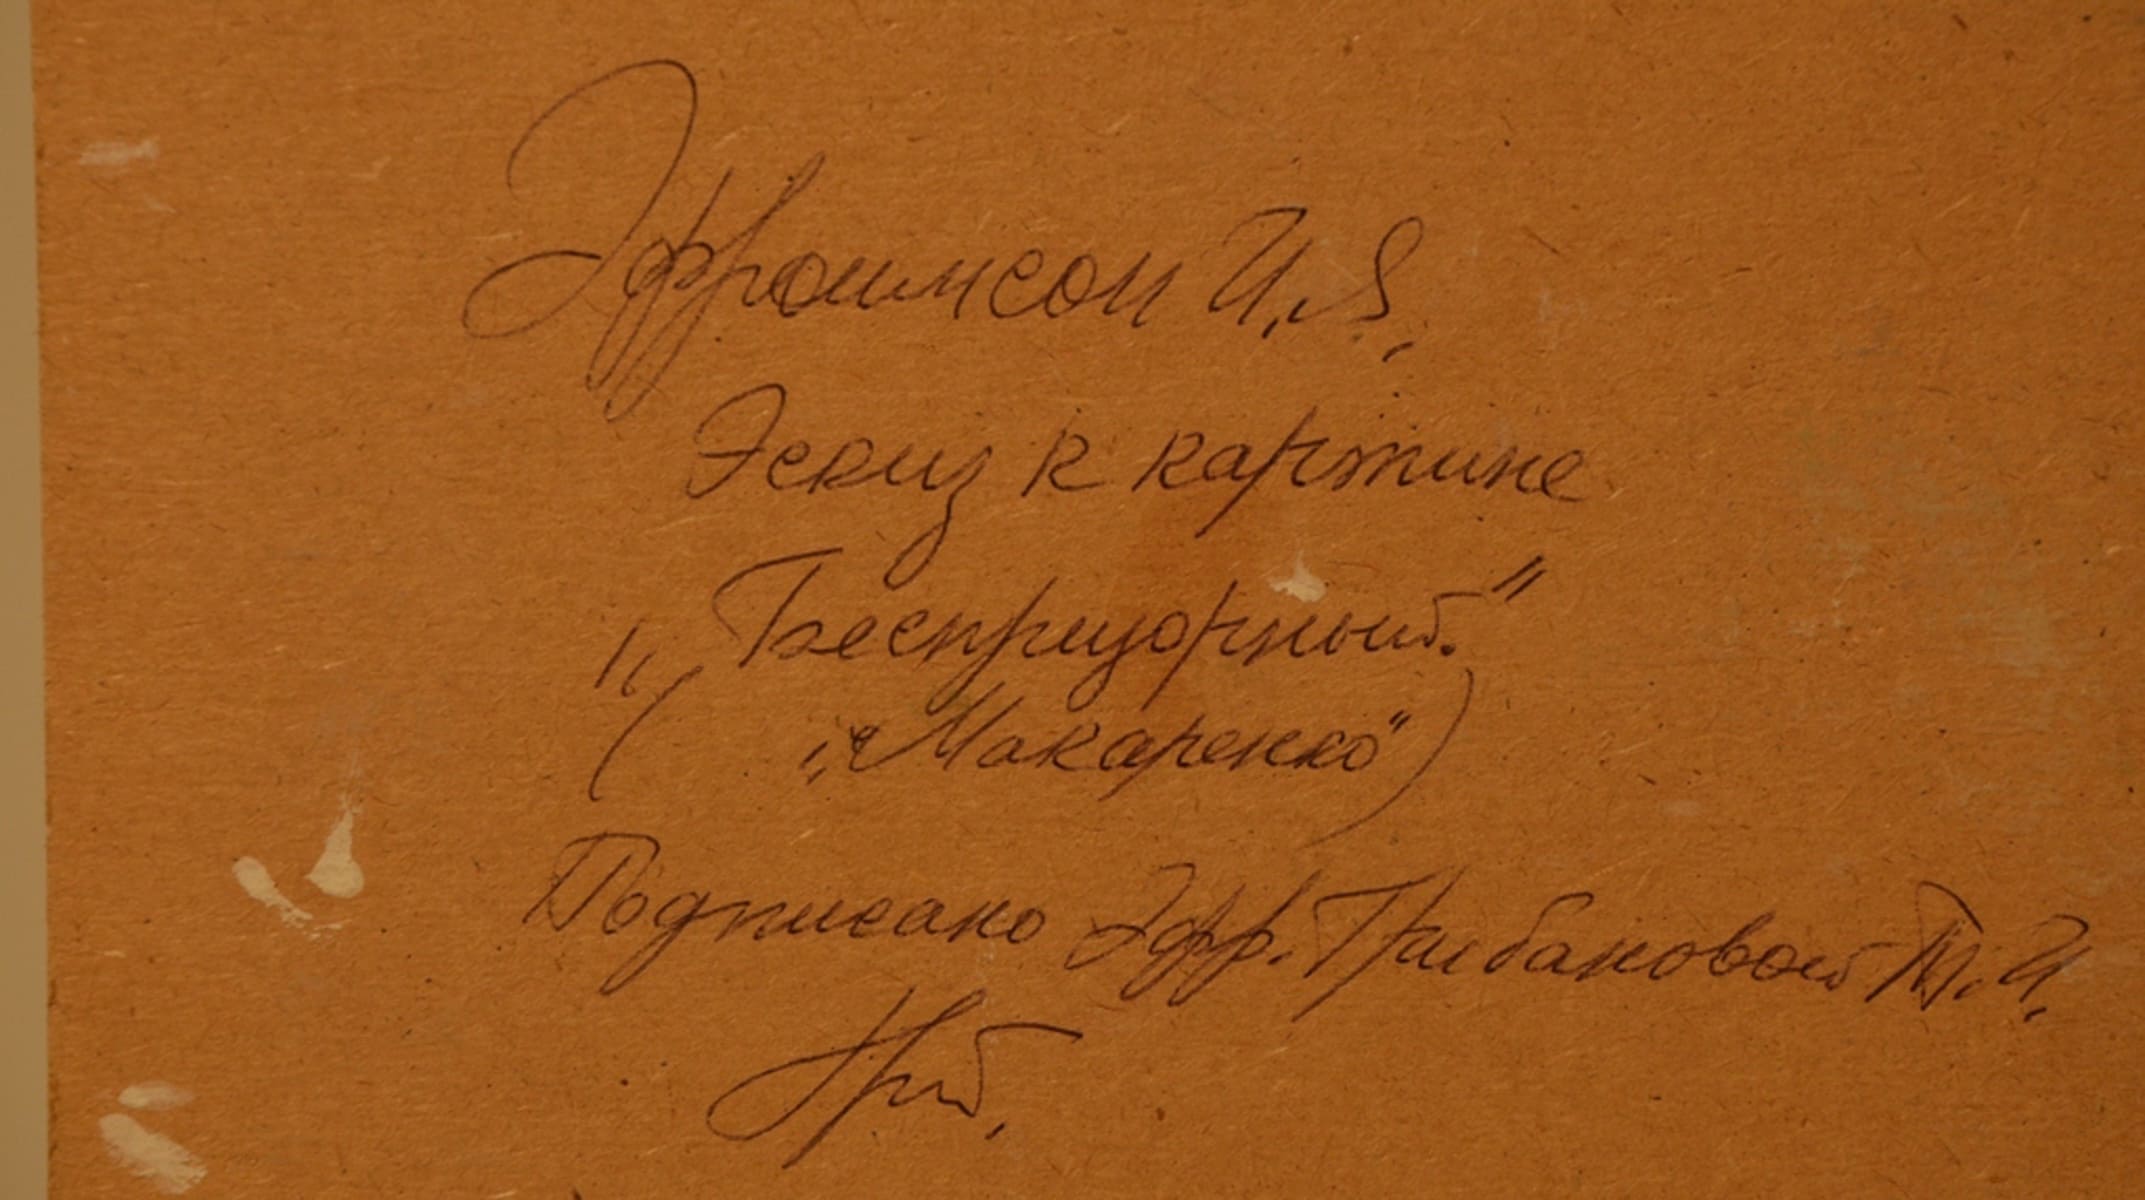 Эфроимсон И.Я.
Эскиз к картине
"Беспризорный."
( „Макаренко“ )
Подписано Эфр. Грибановой Т.И.